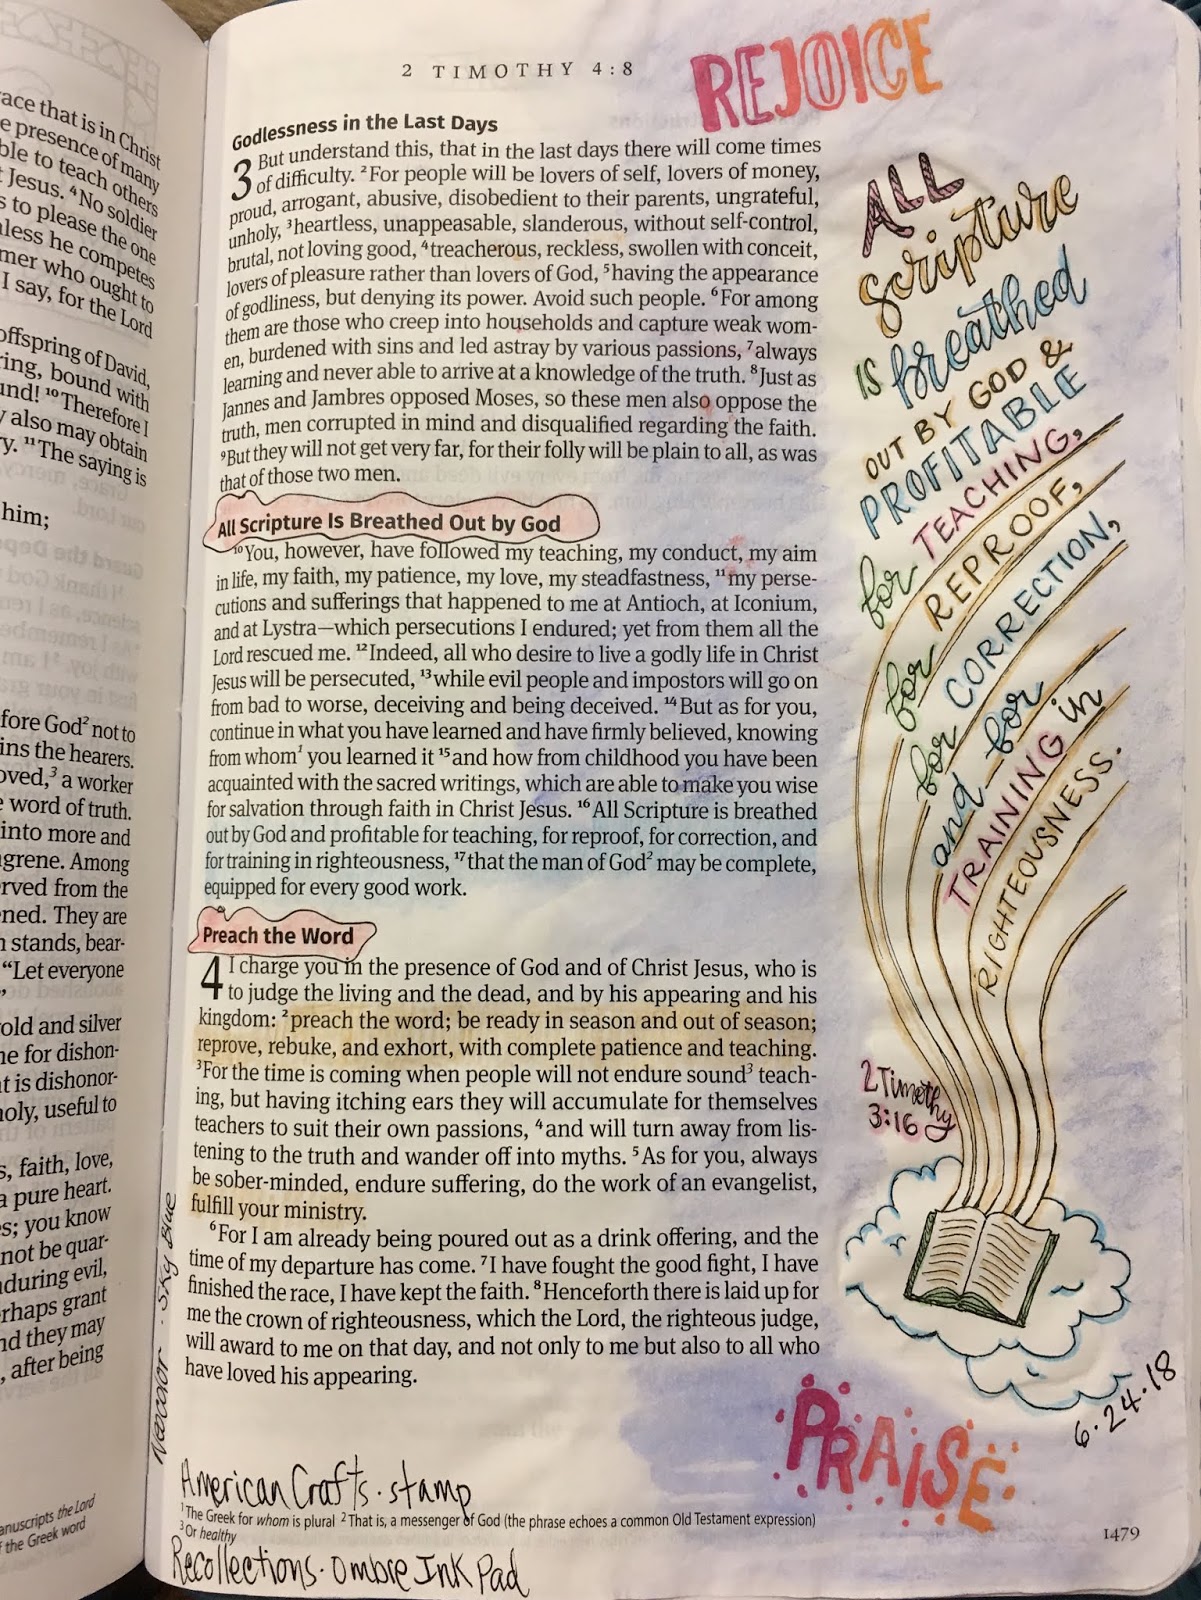 ace that is in Christ
e presence of many
ble to teach others
t Jesus. ⁴No soldier
s to please the one
less he competes
mer who ought to
I say, for the Lord
offspring of David,
ring, bound with
und! ¹⁰Therefore I
y also may obtain
ry. ¹¹The saying is
him;
fore God² not to
ins the hearers.
oved,³ a worker
e word of truth.
into more and
ngrene. Among
erved from the
ned. They are
n stands, bear-
“Let everyone
”
old and silver
ne for dishon-
t is dishonor-
holy, useful to
s, faith, love,
a pure heart.
s; you know
not be quar-
nduring evil,
erhaps grant
nd they may
, after being
anuscripts the Lord
f the Greek word
2 TIMOTHY 4:8
REJOICE
Godlessness in the Last Days
3 But understand this, that in the last days there will come times
of difficulty. ²For people will be lovers of self, lovers of money,
proud, arrogant, abusive, disobedient to their parents, ungrateful,
unholy, ³heartless, unappeasable, slanderous, without self-control,
brutal, not loving good, ⁴treacherous, reckless, swollen with conceit,
lovers of pleasure rather than lovers of God, ⁵having the appearance
of godliness, but denying its power. Avoid such people. ⁶For among
them are those who creep into households and capture weak wom-
en, burdened with sins and led astray by various passions, ⁷always
learning and never able to arrive at a knowledge of the truth. ⁸Just as
Jannes and Jambres opposed Moses, so these men also oppose the
truth, men corrupted in mind and disqualified regarding the faith.
⁹But they will not get very far, for their folly will be plain to all, as was
that of those two men.
All Scripture Is Breathed Out by God
¹⁰You, however, have followed my teaching, my conduct, my aim
in life, my faith, my patience, my love, my steadfastness, ¹¹my perse-
cutions and sufferings that happened to me at Antioch, at Iconium,
and at Lystra—which persecutions I endured; yet from them all the
Lord rescued me. ¹²Indeed, all who desire to live a godly life in Christ
Jesus will be persecuted, ¹³while evil people and impostors will go on
from bad to worse, deceiving and being deceived. ¹⁴But as for you,
continue in what you have learned and have firmly believed, knowing
from whom¹ you learned it ¹⁵and how from childhood you have been
acquainted with the sacred writings, which are able to make you wise
for salvation through faith in Christ Jesus. ¹⁶All Scripture is breathed
out by God and profitable for teaching, for reproof, for correction, and
for training in righteousness, ¹⁷that the man of God² may be complete,
equipped for every good work.
Preach the Word
4 I charge you in the presence of God and of Christ Jesus, who is
to judge the living and the dead, and by his appearing and his
kingdom: ²preach the word; be ready in season and out of season;
reprove, rebuke, and exhort, with complete patience and teaching.
³For the time is coming when people will not endure sound³ teach-
ing, but having itching ears they will accumulate for themselves
teachers to suit their own passions, ⁴and will turn away from lis-
tening to the truth and wander off into myths. ⁵As for you, always
be sober-minded, endure suffering, do the work of an evangelist,
fulfill your ministry.
⁶For I am already being poured out as a drink offering, and the
time of my departure has come. ⁷I have fought the good fight, I have
finished the race, I have kept the faith. ⁸Henceforth there is laid up for
me the crown of righteousness, which the Lord, the righteous judge,
will award to me on that day, and not only to me but also to all who
have loved his appearing.
ALL
Scripture
IS breathed
OUT BY GOD &
PROFITABLE
for TEACHING,
for REPROOF,
for CORRECTION,
and for
TRAINING in
RIGHTEOUSNESS.
2 Timothy
3:16
6·24·18
PRAISE
Neocolor · Sky Blue
American Crafts · stamp
¹The Greek for whom is plural ²That is, a messenger of God (the phrase echoes a common Old Testament expression)
³Or healthy
Recollections · Ombre Ink Pad
1479